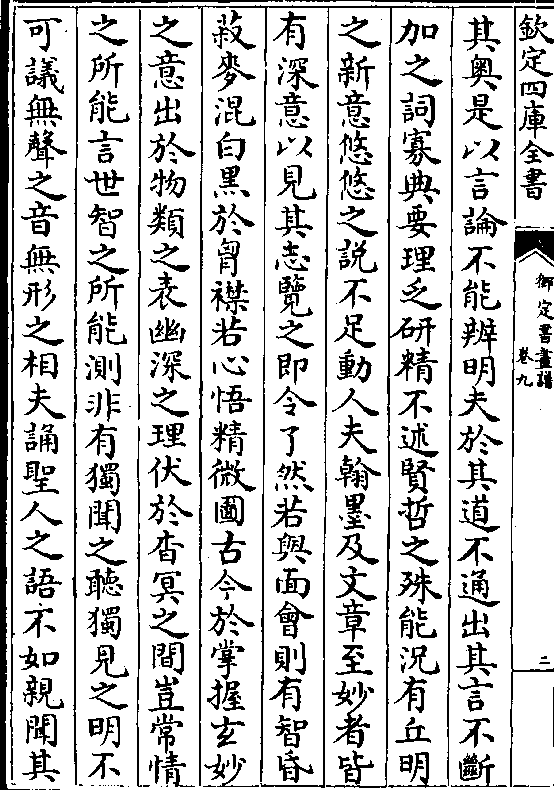 欽定四庫全書
御定書畫譜
卷九
三
其奧是以言論不能辨明夫於其道不通出其言不斷
加之詞寡典要理乏研精不述賢哲之殊能況有丘明
之新意悠悠之說不足動人夫翰墨及文章至妙者皆
有深意以見其志覽之即令了然若與面會則有智昏
菽麥混白黑於胷襟若心悟精微圖古今於掌握玄妙
之意出於物類之表幽深之理伏於杳冥之間豈常情
之所能言世智之所能測非有獨聞之聽獨見之明不
可議無聲之音無形之相夫誦聖人之語不如親聞其